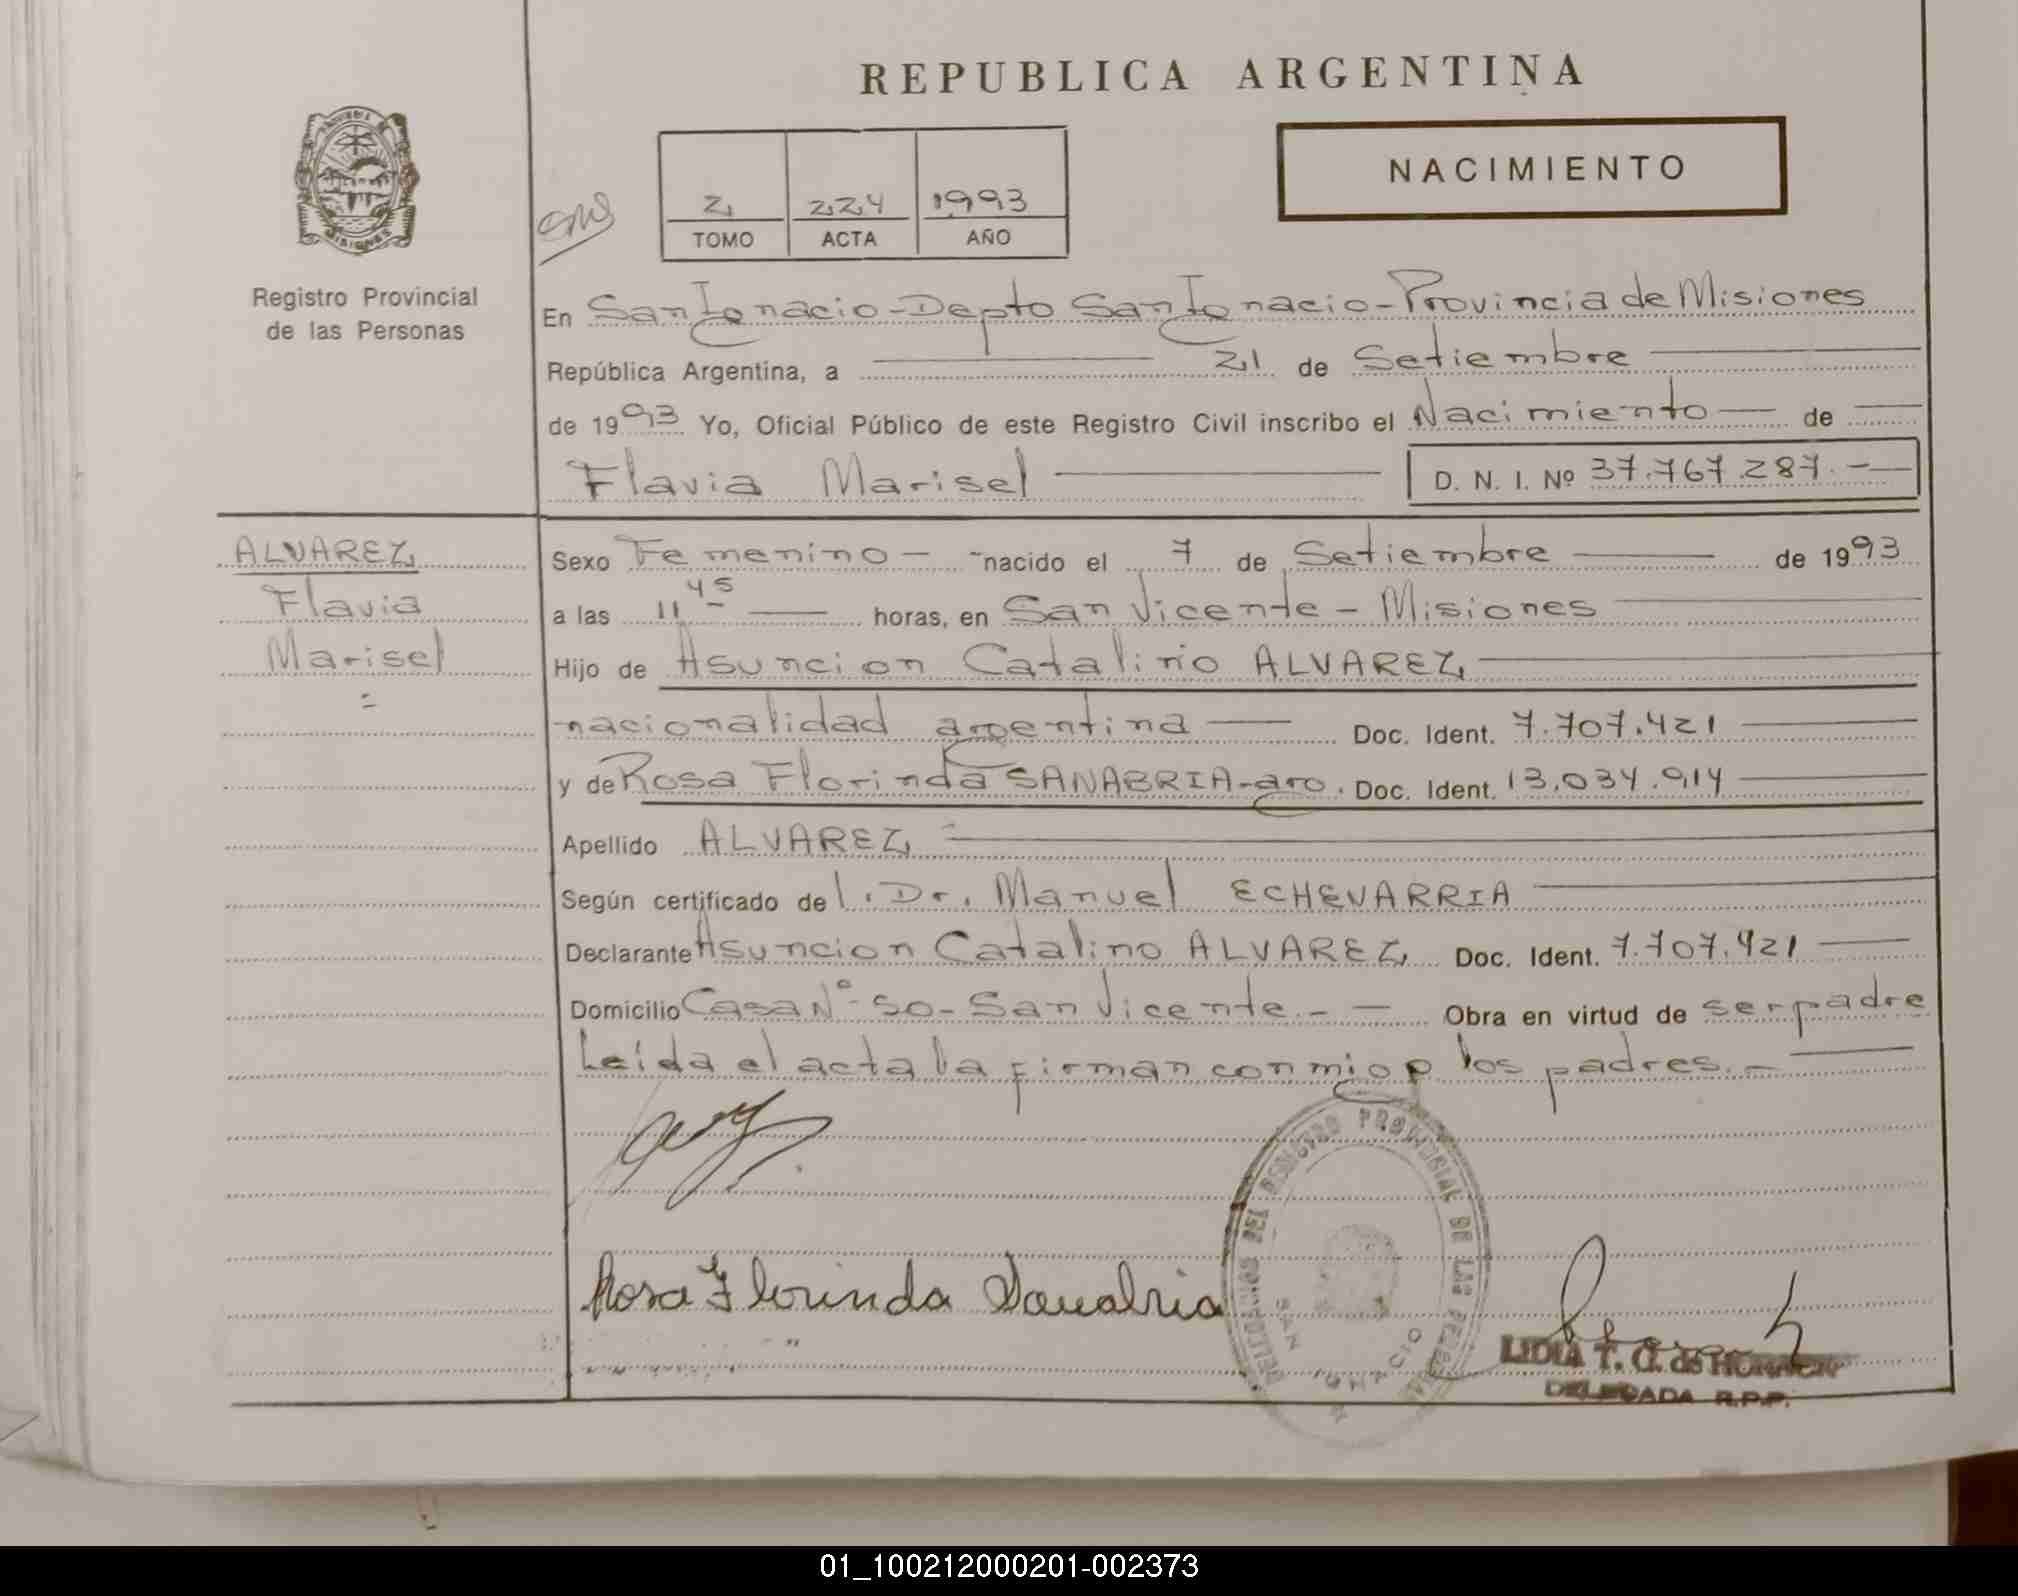 REPUBLICA ARGENTINA
NACIMIENTO
2 224 1993
TOMO ACTA AÑO
PROVINCIA DE MISIONES
Registro Provincial
de las Personas
En San Ignacio - Depto San Ignacio - Provincia de Misiones
República Argentina, a 21 de Setiembre
de 1993 Yo, Oficial Público de este Registro Civil inscribo el Nacimiento — de
Flavia Marisel D. N. I. Nº 37.767.287.-
ALVAREZ
Flavia
Marisel
Sexo Femenino - nacido el 7 de Setiembre de 1993
a las 11 45 horas, en San Vicente - Misiones
Hijo de Asuncion Catalino ALVAREZ
nacionalidad argentina Doc. Ident. 7.707.421
y de Rosa Florinda SANABRIA - arg. Doc. Ident. 13.034.914
Apellido ALVAREZ
Según certificado del. Dr. Manuel ECHEVARRIA
Declarante Asuncion Catalino ALVAREZ Doc. Ident. 7.707.421
Domicilio Casa Nº 50 - San Vicente. - Obra en virtud de ser padre
Leida el acta la firman conmigo los padres. -
Rosa Florinda Sanabria
DEL REGISTRO PROVINCIAL DE LAS PERSONAS
SAN IGNACIO
LIDIA T. G. de
DELEGADA R.P.P.
01_100212000201-002373